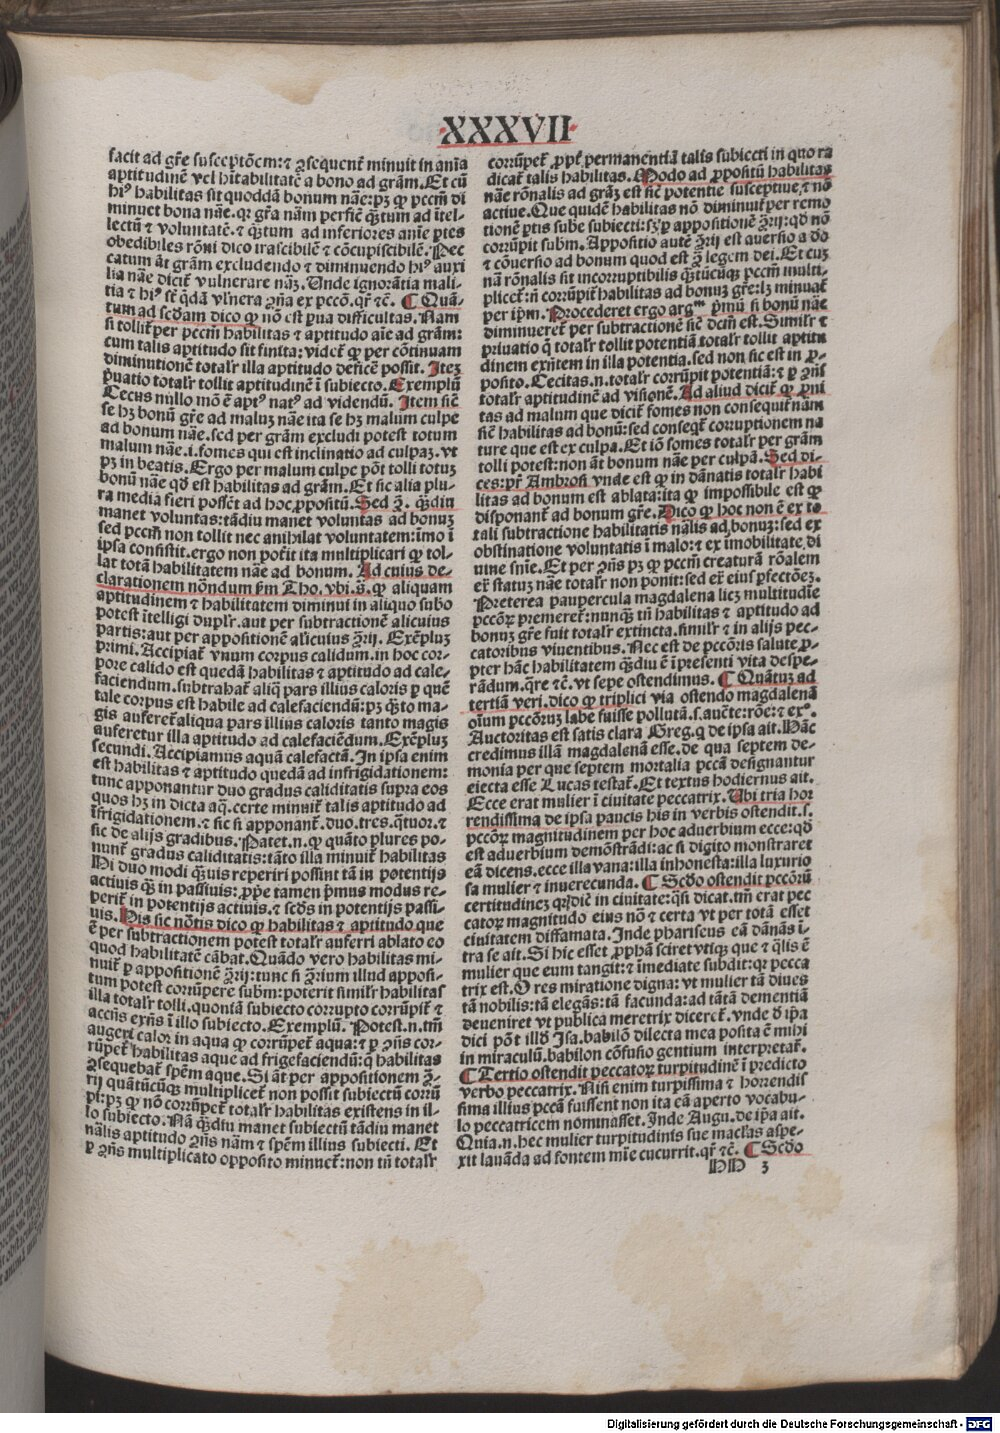 ·XXXVII·
facit ad gr̄e susceptōem: ⁊ ꝯsequent̄ minuit in anīa
aptitudinē vel hītabilitatē a bono ad grām. Et cū
hiꝰ habilitas sit quoddā bonum nāe: pꝫ ꝙ pccm̄ di
minuet bona nāe. qr gr̄a nām perfic̄ q̄ꝫtum ad ītel-
lectū ⁊ voluntatē. ⁊ q̄ꝫtum ad inferiores anīe ptes
obedibiles rōni dico irascibilē ⁊ cōcupiscibilē. Pec
catum āt grām excludendo ⁊ diminuendo hiꝰ auxi
lia nāe dicit̄ vulnerare nāꝫ. Unde ignorātia mali-
tia ⁊ hiꝰ st̄ q̄dā vl̄nera ꝯn̄a ex pccō. qr̄ ⁊c̄. ¶ Quā-
tum ad scd̄am dico ꝙ nō est pua difficultas. Nam
si tollit̄ per pccm̄ habilitas ⁊ aptitudo aīe ad grām:
cum talis aptitudo sit finita: videt̄ ꝙ per cōtinuam
diminutionē totalr̄ illa aptitudo deficē possit. Iteꝫ
p̄uatio totalr̄ tollit aptitudinē ī subiecto. Exemplū
Cecus nullo mō ē aptꝰ natꝰ ad videndū. Item sic̄
se hꝫ bonū gr̄e ad maluꝫ nāe ita se hꝫ malum culpe
ad bonum nāe. sed per grām excludi potest totum
malum nāe. i. fomes qui est inclinatio ad culpaꝫ. vt
pꝫ in beatis. Ergo per malum culpe pōt tolli totuꝫ
bonū nāe qd̄ est habilitas ad grām. Et sic alia plu-
ra media fieri possēt ad hoc ꝓpositū. Sed ꝯ̄. q̄ꝫdiu
manet voluntas: tādiu manet volūtas ad bonuꝫ
sed pccm̄ non tollit nec anihilat voluntatem: imo ī
ipsa consistit. ergo non potīt ita multiplicari ꝙ tol-
lat totā habilitatem nāe ad bonum. Ad cuius de-
clarationem nōndum sm̄ Tho. vbi. s̄. ꝙ aliquam
aptitudinem ⁊ habilitatem diminui in aliquo subo
potest ītelligi duplr̄. aut per subtractionē alicuius
partis: aut per appositionē alicuius ꝯ̄rij. Exēpluꝫ
primi. Accipiat̄ vnum corpus calidum. in hoc cor-
pore calido est quedā habilitas ⁊ aptitudo ad cale-
faciendum. subtrahat̄ aliq̄ pars illius caloris p quē
tale corpus est habile ad calefaciendū: pꝫ q̄ꝫto ma-
gis auferet̄ aliqua pars illius caloris tanto magis
auferetur illa aptitudo ad calefaciēdum. Exēpluꝫ
secundi. Accipiamus aquā calefactā. In ipsa enim
est habilitas ⁊ aptitudo quedā ad infrigidationem:
tunc apponantur duo gradus caliditatis supra eos
quos hꝫ in dicta aq̄. certe minuit̄ talis aptitudo ad
īfrigidationem. ⁊ sic si apponant̄. duo. tres. q̄tuor. ⁊
sic de alijs gradibus. Patet. n. ꝙ quāto plures po-
nunt̄ gradus caliditatis: tāto illa minuit̄ habilitas
Hi duo modi q̄ꝫuis reperiri possint tā in potentijs
actiuis q̄ꝫ in passiuis: ꝓp̄e tamen p̄mus modus re-
perit̄ in potentijs actiuis. ⁊ scd̄s in potentijs passi-
uis. His sic nōtis dico ꝙ habilitas ⁊ aptitudo que
ē per subtractionem potest totalr̄ auferri ablato eo
quod habilitatē cābat. Quādo vero habilitas mi-
nuit̄ p appositionē ꝯ̄rij: tunc si ꝯ̄rium illud apposi-
tum potest corrūpere subm̄: poterit similr̄ habilitas
illa totalr̄ tolli. quoniā subiecto corrupto corrūpit̄ ⁊
accn̄s exn̄s ī illo subiecto. Exemplū. Potest. n. tm̄
augeri calor in aqua ꝙ corrūpet̄ aqua: ⁊ p ꝯn̄s cor-
rūpet̄ habilitas aque ad frigefaciendū: q̄ habilitas
ꝯsequebat̄ spēm aque. Si āt per appositionem ꝯ̄-
rij quātūcūqꝫ multiplicet̄ non possit subiectū corrū
pi: pꝫ ꝙ nō corrūpet̄ totalr̄ habilitas existens in il-
lo subiecto. Nā q̄ꝫdiu manet subiectū tādiu manet
nālis aptitudo ꝯn̄s nām ⁊ spēm illius subiecti. Et
p ꝯn̄s multiplicato opposito minuet̄: non tn̄ totalr̄
corrūpet̄ ꝓpt̄ permanentiā talis subiecti in quo ra
dicat̄ talis habilitas. Modo ad ꝓpositū habilitas
nāe rōnalis ad grāꝫ est sic̄ potentie susceptiue, ⁊ nō
actiue. Que quidē habilitas nō diminuit̄ per remo
tionē ptis sube subiecti: sꝫ p appositionē ꝯ̄rij: qd̄ nō
corrūpit subm̄. Appositio autē ꝯ̄rij est auersio a do
⁊ cōuersio ad bonum quod est ꝯ̄ legem dei. Et cuꝫ
nā rōnalis sit incorruptibilis q̄ꝫtūcūqꝫ pccm̄ multi-
plicet̄: n̄ corrūpit̄ habilitas ad bonuꝫ gr̄e: lꝫ minuat̄
per ip̄m. Procederet ergo argᵐ p̄mū si bonū nāe
diminueret̄ per subtractionē sic̄ dcm̄ est. Similr̄ ⁊
priuatio q̄ totalr̄ tollit potentiā totalr̄ tollit aptitu
dinem exn̄tem in illa potentia. sed non sic est in ꝓ-
posito. Cecitas. n. totalr̄ corrūpit potentiā: ⁊ p ꝯn̄s
totalr̄ aptitudinē ad visionē. Ad aliud dicit̄ ꝙ pni
tas ad malum que dicit̄ fomes non consequit̄ nām
sic̄ habilitas ad bonū: sed conseqt̄ corruptionem na
ture que est ex culpa. Et iō fomes totalr̄ per grām
tolli potest: non āt bonum nāe per culpā. Sed di-
ces: pt̄ Ambrosi vnde est ꝙ in dānatis totalr̄ habi
litas ad bonum est ablata: ita ꝙ impossibile est ꝙ
disponant̄ ad bonum gr̄e. Dico ꝙ hoc non ē ex to
tali subtractione habilitatis nālis ad bonuꝫ: sed ex
obstinatione voluntatis ī malo: ⁊ ex īmobilitate di
uine sn̄ie. Et per ꝯn̄s pꝫ ꝙ pccm̄ creaturā rōalem
er̄ statuꝫ nāe totalr̄ non ponit: sed er̄ eius ꝑfectōeꝫ.
Preterea paupercula magdalena licꝫ multitudīe
pccōꝝ premeret̄: nunqꝫ tn̄ habilitas ⁊ aptitudo ad
bonuꝫ gr̄e fuit totalr̄ extincta. similr̄ ⁊ in alijs pec-
catoribus viuentibus. Nec est de pccōris salute ꝓ-
pter hāc habilitatem q̄ꝫdiu ē ī presenti vita despe-
rādum. q̄re ⁊c̄. vt sepe ostendimus. ¶ Quātuꝫ ad
tertiā veri. dico ꝙ triplici via ostendo magdalenā
oīum pccōruꝫ labe fuisse pollutā. s. auc̄te: rōe: ⁊ exº.
Auctoritas est satis clara Greg. q̄ de ipsa ait. Hāc
credimus illā magdalenā esse. de qua septem de-
monia per que septem mortalia pccā designantur
eiecta esse Lucas testat̄. Et textus hodiernus ait.
Ecce erat mulier ī ciuitate peccatrix. Ubi tria hor
rendissima de ipsa paucis his in verbis ostendit. s.
pccōꝝ magnitudinem per hoc aduerbium ecce: qd̄
est aduerbium demōstrādi: ac si digito monstraret
eā dicens. ecce illa vana: illa inhonesta: illa luxurio
sa mulier ⁊ inuerecunda. ¶ Scd̄o ostendit pccōrū
certitudineꝫ qr̄ dic̄ in ciuitate: q̄si dicat. tm̄ erat pec
catoꝝ magnitudo eius nō ⁊ certa vt per totā esset
ciuitatem diffamata. Inde phariseus eā dānās ī-
tra se ait. Si hic esset ꝓphā sciret vtiqꝫ que ⁊ q̄lis ē
mulier que eum tangit: ⁊ īmediate subdit: qr̄ pecca
trix est. O res miratione digna: vt mulier tā diues
tā nobilis: tā elegās: tā facunda: ad tātā dementiā
deueniret vt publica meretrix diceret̄. vnde ð ip̄a
dici pōt illð Isa. babilō dilecta mea posita ē mihi
in miraculū. babilon cōfusio gentium interpretat̄.
¶ Tertio ostendit peccatoꝝ turpitudinē ī predicto
verbo peccatrix. Nisi enim turpissima ⁊ horrendis
sima illius pccā fuissent non ita eā aperto vocabu-
lo peccatricem nominasset. Inde Augu. de ip̄a ait.
Quia. n. hec mulier turpitudinis sue macl̄as aspe-
xit lauāda ad fontem mīe cucurrit. qr̄ ⁊c̄. ¶ Scd̄o
HH 3
Digitalisierung gefördert durch die Deutsche Forschungsgemeinschaft - DFG